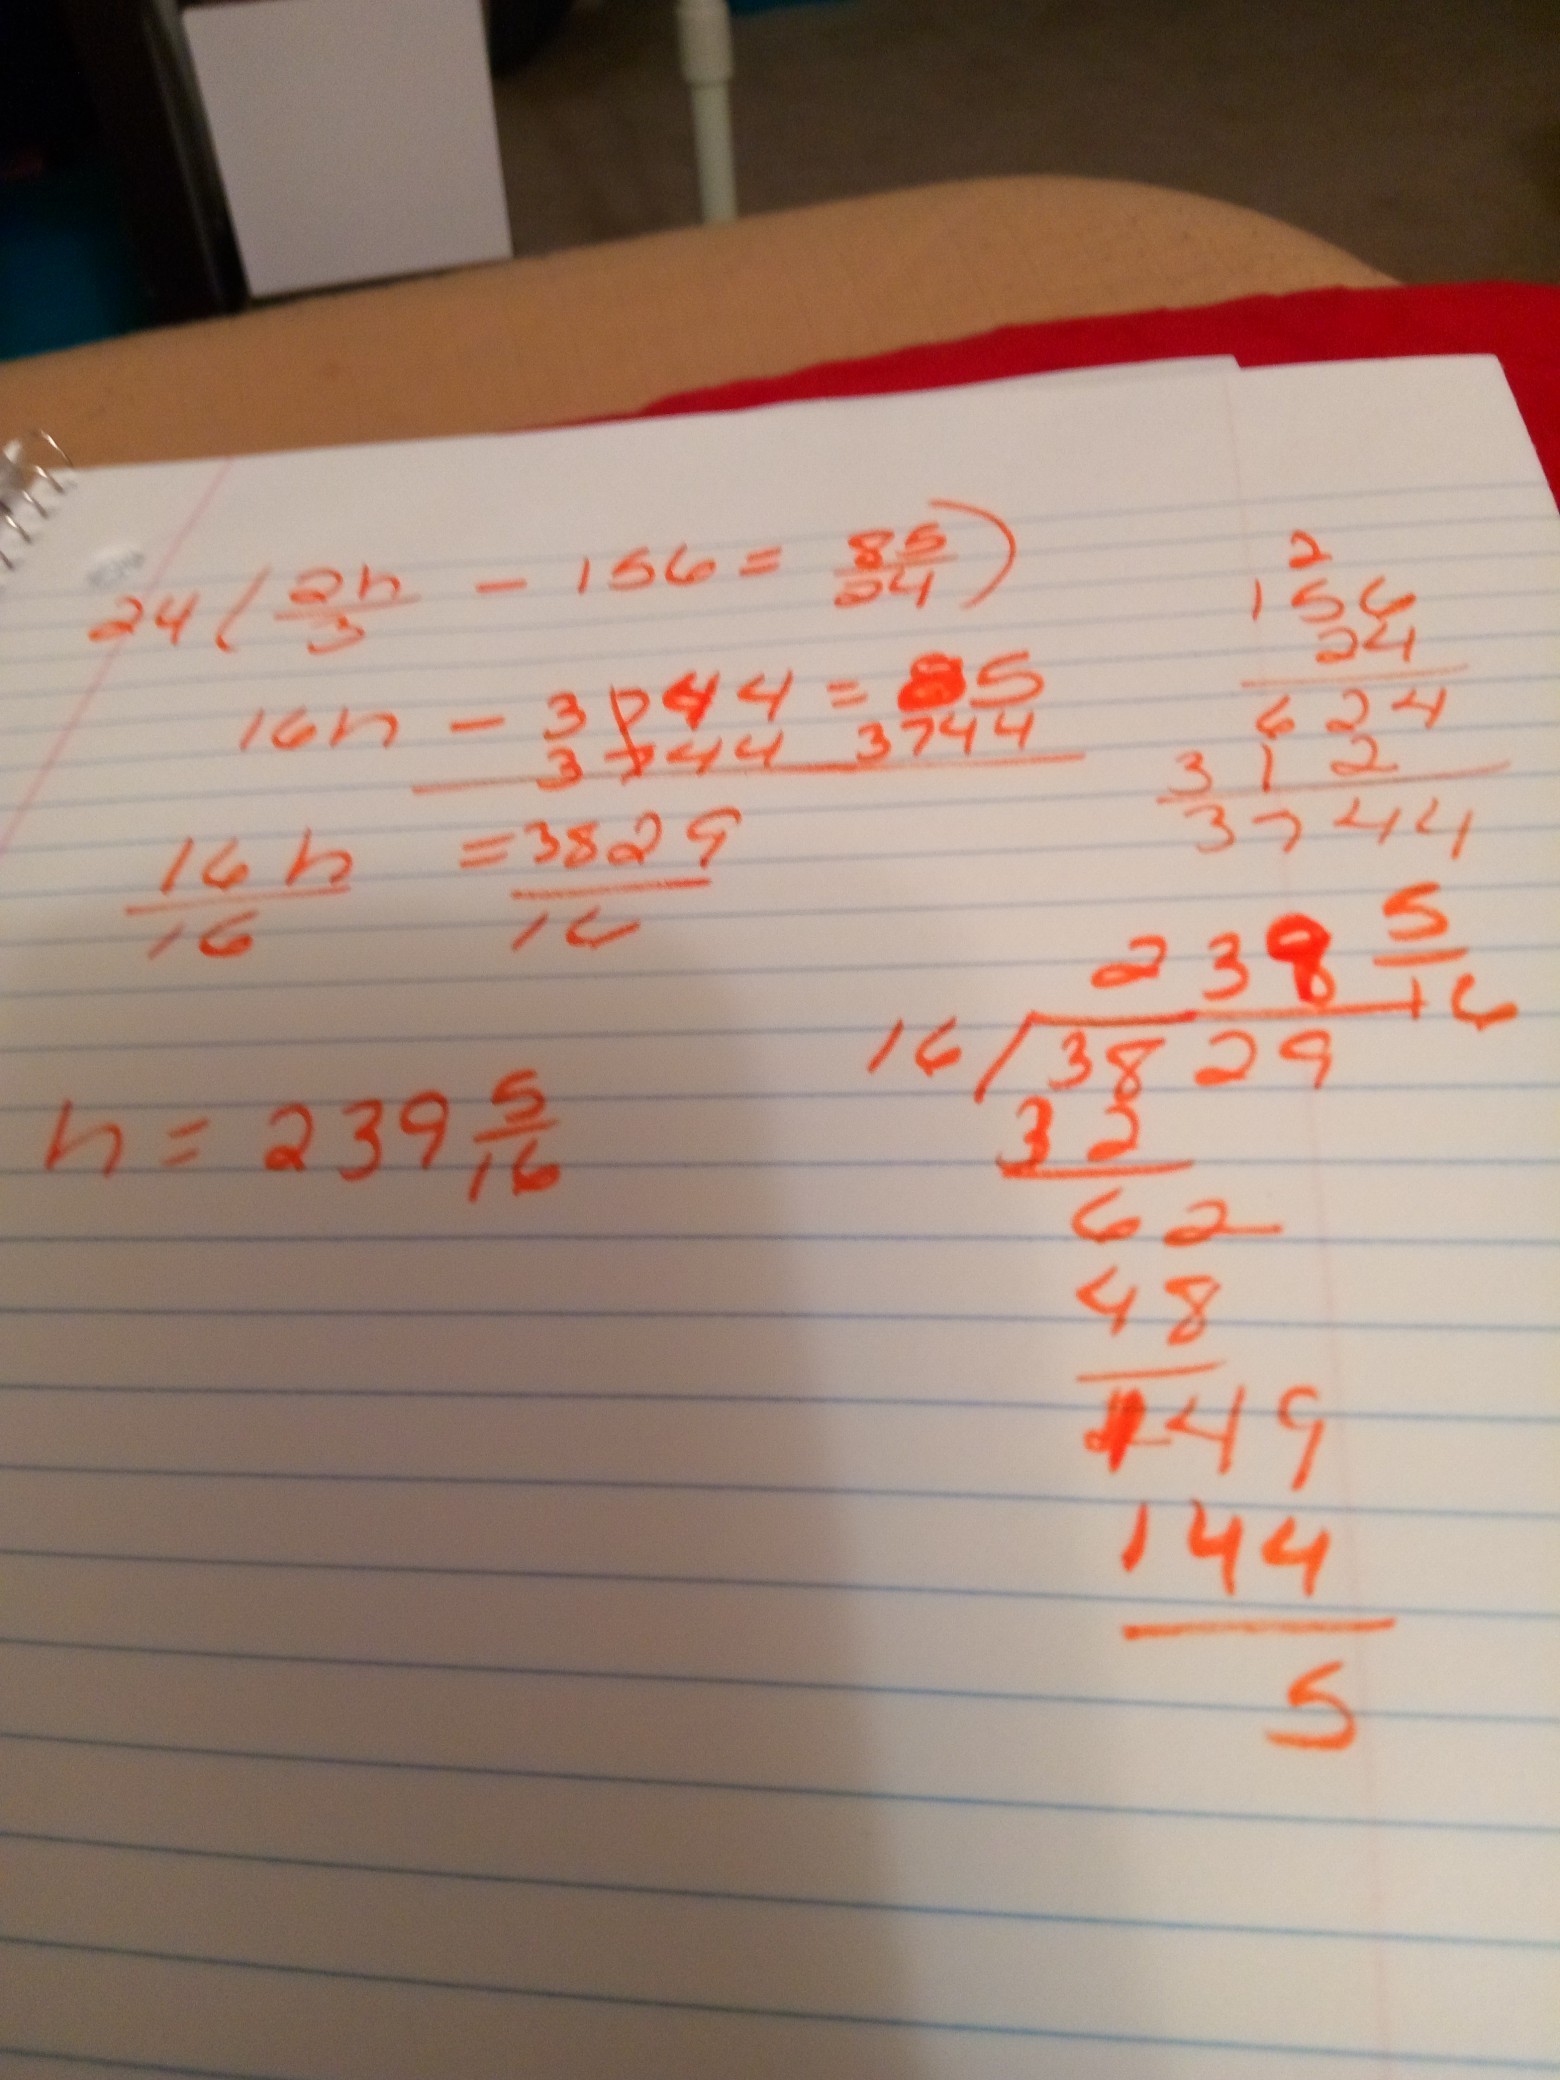 24 ( 2n/3 - 156 = 85/24 )
16n - 3744 = 85
3744 3744
16n = 3829
16 16
n = 239 5/16
2
156
24
624
312
3744
239 5/16
16 3829
32
62
48
149
144
5